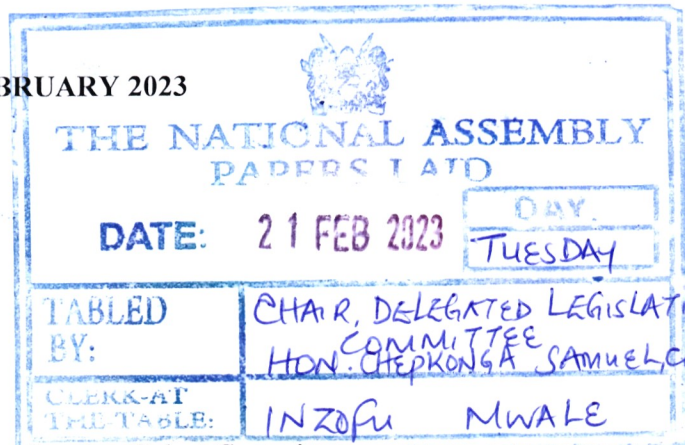 BRUARY 2023
THE NATIONAL ASSEMBLY
PAPERS LAID
DAY.
DATE: 21 FEB 2023
TUESDAY
TABLED BY:
CHAIR, DELEGATED LEGISLAT
COMMITTEE
HON. CHEPKONGA SAMUEL, C
CLERK-AT THE-TABLE:
INZOFU MWALE